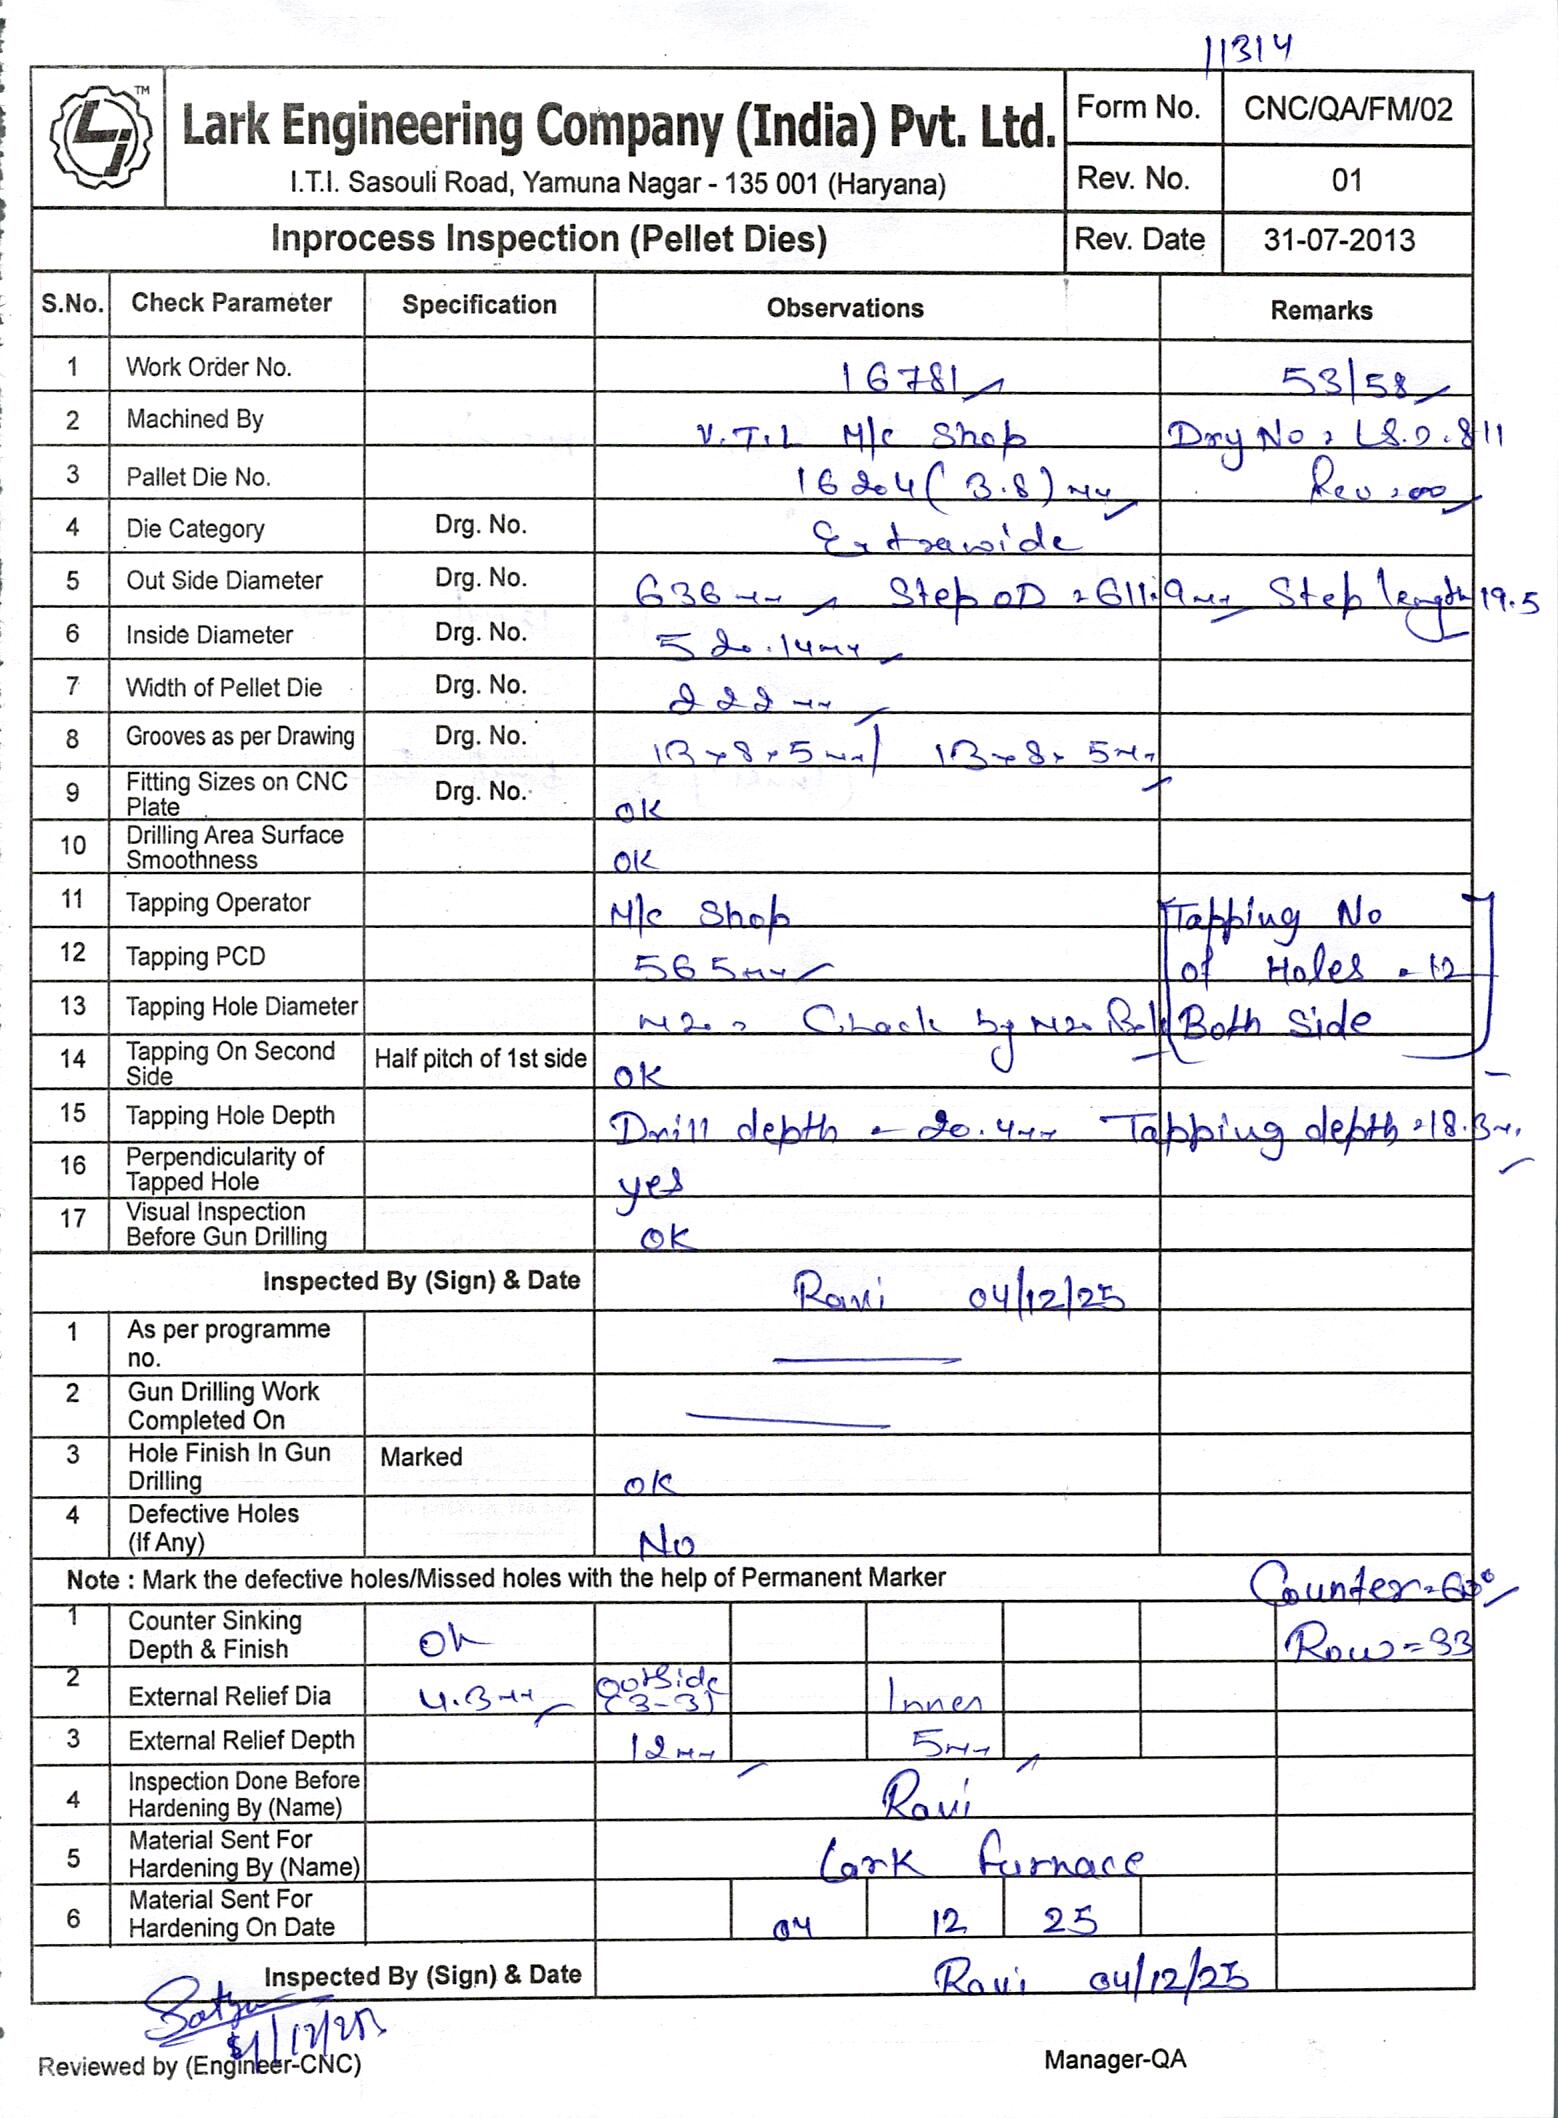 11314
TM
Lark Engineering Company (India) Pvt. Ltd.
I.T.I. Sasouli Road, Yamuna Nagar - 135 001 (Haryana)
Form No. CNC/QA/FM/02
Rev. No. 01
Inprocess Inspection (Pellet Dies) Rev. Date 31-07-2013
S.No. Check Parameter Specification Observations Remarks
1 Work Order No. 16781 53/58
2 Machined By V.T.L M/c Shop
3 Pallet Die No. 16204 (3.8) mm Rev = 00
4 Die Category Drg. No. Extrawide
5 Out Side Diameter Drg. No. 636 mm Step OD = 611.9 mm Step length 19.5
6 Inside Diameter Drg. No. 520.14mm
7 Width of Pellet Die Drg. No. 222 mm
8 Grooves as per Drawing Drg. No. 13 x 8 x 5 mm / 13 x 8 x 5 mm
9 Fitting Sizes on CNC Plate Drg. No. OK
10 Drilling Area Surface Smoothness OK
11 Tapping Operator M/c Shop Tapping No
12 Tapping PCD 565mm of Holes = 12
13 Tapping Hole Diameter M20 = Chack by M20 Both Side
14 Tapping On Second Side Half pitch of 1st side OK
15 Tapping Hole Depth Drill depth = 20.4mm Tapping depth = 18.3mm
16 Perpendicularity of Tapped Hole yes
17 Visual Inspection Before Gun Drilling OK
Inspected By (Sign) & Date Ravi 04/12/25
1 As per programme no.
2 Gun Drilling Work Completed On
3 Hole Finish In Gun Drilling Marked OK
4 Defective Holes (If Any) No
Note : Mark the defective holes/Missed holes with the help of Permanent Marker Counter = 60°
1 Counter Sinking Depth & Finish Ok Row = 33
2 External Relief Dia 4.3mm Outside (3-3) Inner
3 External Relief Depth 12mm 5mm
4 Inspection Done Before Hardening By (Name) Ravi
5 Material Sent For Hardening By (Name) Lark Furnace
6 Material Sent For Hardening On Date 04 12 25
Inspected By (Sign) & Date Ravi 04/12/25
Reviewed by (Engineer-CNC) Manager-QA